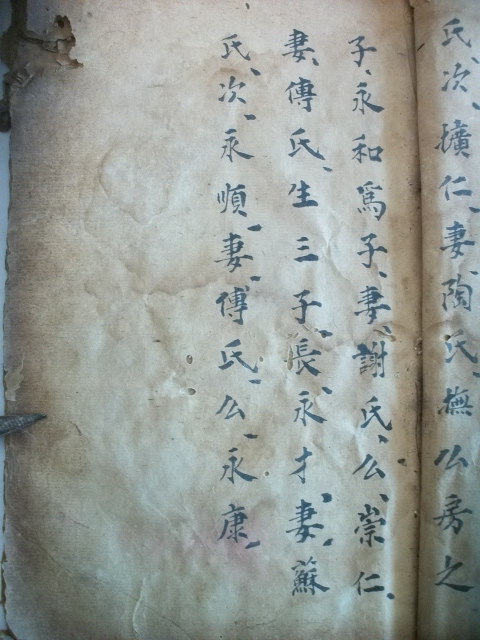 氏、次、擴仁、妻、陶氏、撫公房之
子、永和爲子、妻、謝氏、公、崇仁、
妻、傅氏、生三子、長、永才、妻、蘇
氏、次、永順、妻、傅氏、公、永康、